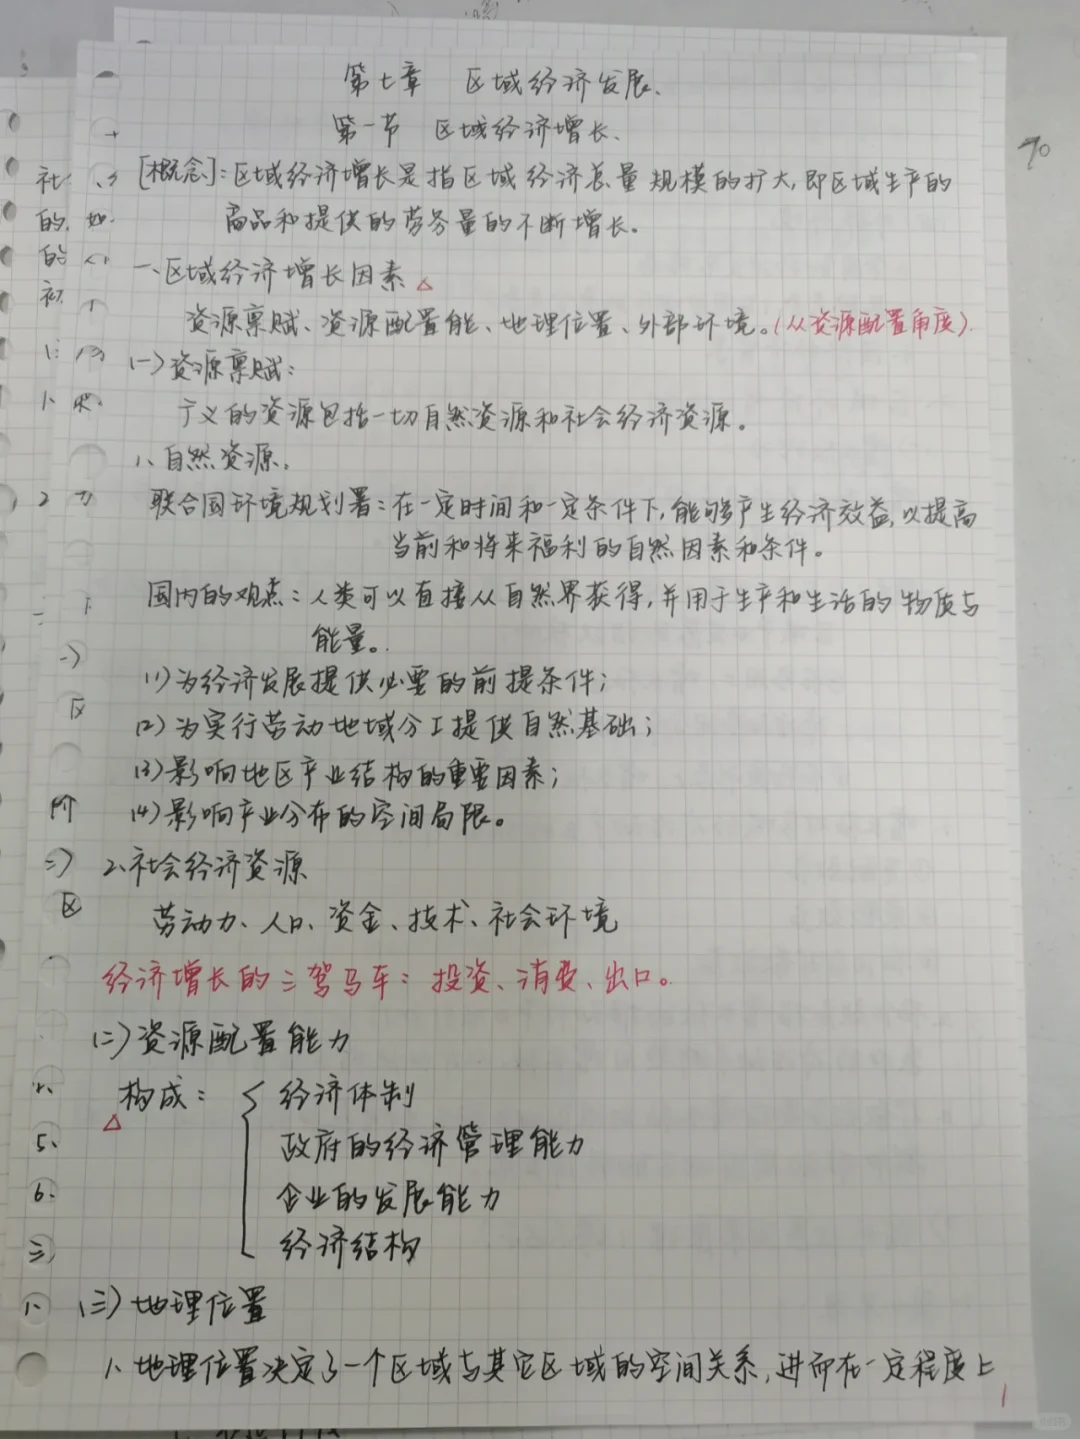 第七章 区域经济发展、
第一节 区域经济增长、
[概念]:区域经济增长是指区域经济总量规模的扩大,即区域生产的
商品和提供的劳务量的不断增长。
一、区域经济增长因素 △
资源禀赋、资源配置能、地理位置、外部环境。(从资源配置角度)
(一)资源禀赋:
广义的资源包括一切自然资源和社会经济资源。
1、自然资源。
联合国环境规划署:在一定时间和一定条件下,能够产生经济效益,以提高
当前和将来福利的自然因素和条件。
国内的观点:人类可以直接从自然界获得,并用于生产和生活的物质与
能量。
(1)为经济发展提供必要的前提条件;
(2)为实行劳动地域分工提供自然基础;
(3)影响地区产业结构的重要因素;
(4)影响产业分布的空间局限。
2、社会经济资源
劳动力、人口、资金、技术、社会环境
经济增长的三驾马车:投资、消费、出口。
(二)资源配置能力
构成: { 经济体制
△
政府的经济管理能力
企业的发展能力
经济结构
(三)地理位置
1、地理位置决定了一个区域与其它区域的空间关系,进而在一定程度上
1
70
社
的
的
初
2
区
阶
区
5、
6、
三、
1、